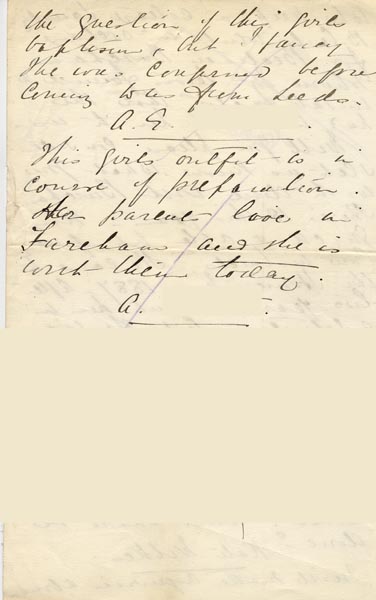 the question of this girls
baptism, but I fancy
she was confirmed before
coming to us from Leeds.
A. G.
This girls outfit is in
course of preparation.
Her parents love in
Fareham and she is
with them today.
A.